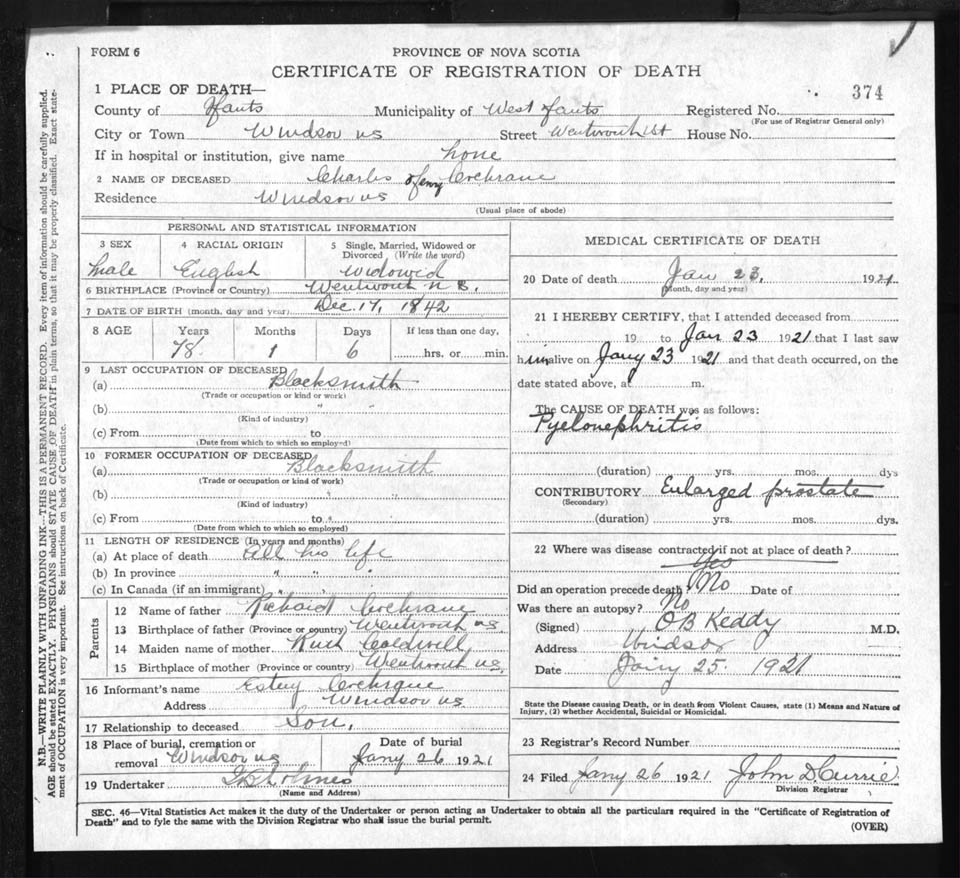 FORM 6
PROVINCE OF NOVA SCOTIA
CERTIFICATE OF REGISTRATION OF DEATH
374
1 PLACE OF DEATH—
County of Hants Municipality of West Hants Registered No.
(For use of Registrar General only)
City or Town Windsor NS Street Wentworth St House No.
If in hospital or institution, give name home
2 NAME OF DECEASED Charles Henry Cochrane
Residence Windsor NS
(Usual place of abode)
PERSONAL AND STATISTICAL INFORMATION
3 SEX 4 RACIAL ORIGIN 5 Single, Married, Widowed or Divorced (Write the word)
male English Widowed
6 BIRTHPLACE (Province or Country) Wentworth N S.
7 DATE OF BIRTH (month, day and year) Dec. 17, 1842
8 AGE Years Months Days If less than one day,
78 1 6 hrs. or min.
9 LAST OCCUPATION OF DECEASED
(a) Blacksmith
(Trade or occupation or kind or work)
(b) "
(Kind of industry)
(c) From to
(Date from which to which so employed)
10 FORMER OCCUPATION OF DECEASED
(a) Blacksmith
(Trade or occupation or kind of work)
(b)
(Kind of industry)
(c) From to
(Date from which to which so employed)
11 LENGTH OF RESIDENCE (In years and months)
(a) At place of death All his life
(b) In province " " "
(c) In Canada (if an immigrant) "
Parents
12 Name of father Richard Cochrane
13 Birthplace of father (Province or country) Wentworth NS.
14 Maiden name of mother Ruth Coldwell
15 Birthplace of mother (Province or country) Wentworth NS
16 Informant's name Cochrane
Address Windsor NS
17 Relationship to deceased Son,
18 Place of burial, cremation or removal Windsor NS
Date of burial Jany 26 1921
19 Undertaker Holmes
(Name and Address)
MEDICAL CERTIFICATE OF DEATH
20 Date of death Jan 23, 1921
(Month, day and year)
21 I HEREBY CERTIFY, that I attended deceased from
19 to Jan 23 1921 that I last saw
him alive on Jany 23 1921 and that death occurred, on the
date stated above, at m.
The CAUSE OF DEATH was as follows:
Pyelonephritis
(duration) yrs. mos. dys
CONTRIBUTORY Enlarged prostate
(Secondary)
(duration) yrs. mos. dys.
22 Where was disease contracted if not at place of death?
Yes
Did an operation precede death? No Date of
Was there an autopsy? No
(Signed) OB Keddy M.D.
Address Windsor
Date Jany 25 1921
State the Disease causing Death, or in death from Violent Causes, state (1) Means and Nature of
Injury, (2) whether Accidental, Suicidal or Homicidal.
23 Registrar's Record Number
24 Filed Jany 26 1921 John D Currie
Division Registrar
SEC. 46—Vital Statistics Act makes it the duty of the Undertaker or person acting as Undertaker to obtain all the particulars required in the "Certificate of Registration of
Death" and to fyle the same with the Division Registrar who shall issue the burial permit.
(OVER)
N.B.—WRITE PLAINLY WITH UNFADING INK—THIS IS A PERMANENT RECORD. Every item of information should be carefully supplied.
AGE should be stated EXACTLY. PHYSICIANS should STATE CAUSE OF DEATH in plain terms, so that it may be properly classified. Exact state-
ment of OCCUPATION is very important. See instructions on back of Certificate.